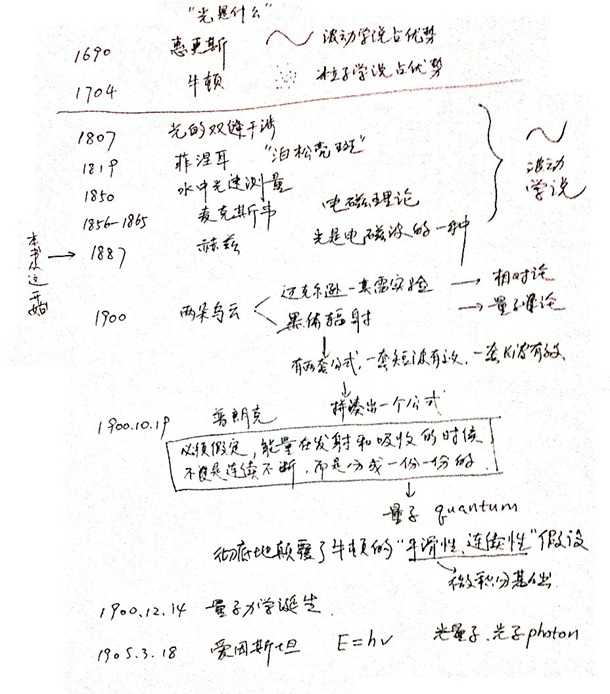 "光是什么"
1690 惠更斯 波动学说占优势
1704 牛顿 粒子学说占优势
1807 光的双缝干涉
1819 菲涅耳 "泊松亮斑"
1850 水中光速测量
1856-1865 麦克斯韦 电磁理论
1887 赫兹 光是电磁波的一种
波动
学说
本书从这开始
1900 两朵乌云
迈克尔逊-莫雷实验 → 相对论
黑体辐射 → 量子理论
有两套公式,一套短波有效,一套长波有效
1900.10.19 普朗克 拼凑出一个公式
必须假定,能量在发射和吸收的时候
不是连续不断,而是分成一份一份的.
量子 quantum
彻底地颠覆了牛顿的"平滑性、连续性"假设
微积分基础
1900.12.14 量子力学诞生
1905.3.18 爱因斯坦 E=hν 光量子、光子photon